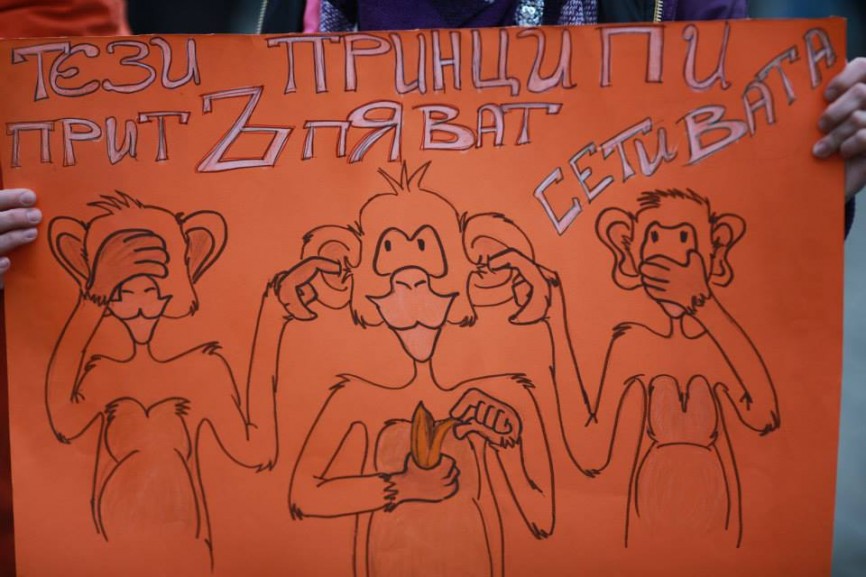 ТЕЗИ ПРИНЦИПИ
ПРИТЪПЯВАТ СЕТИВАТА